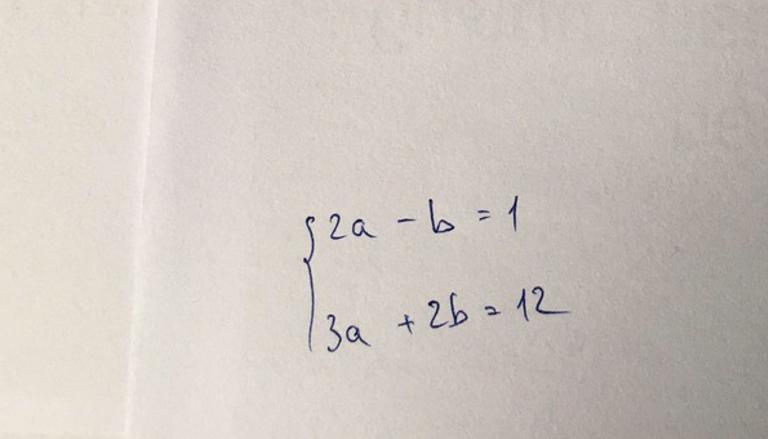 2a - b = 1
3a + 2b = 12